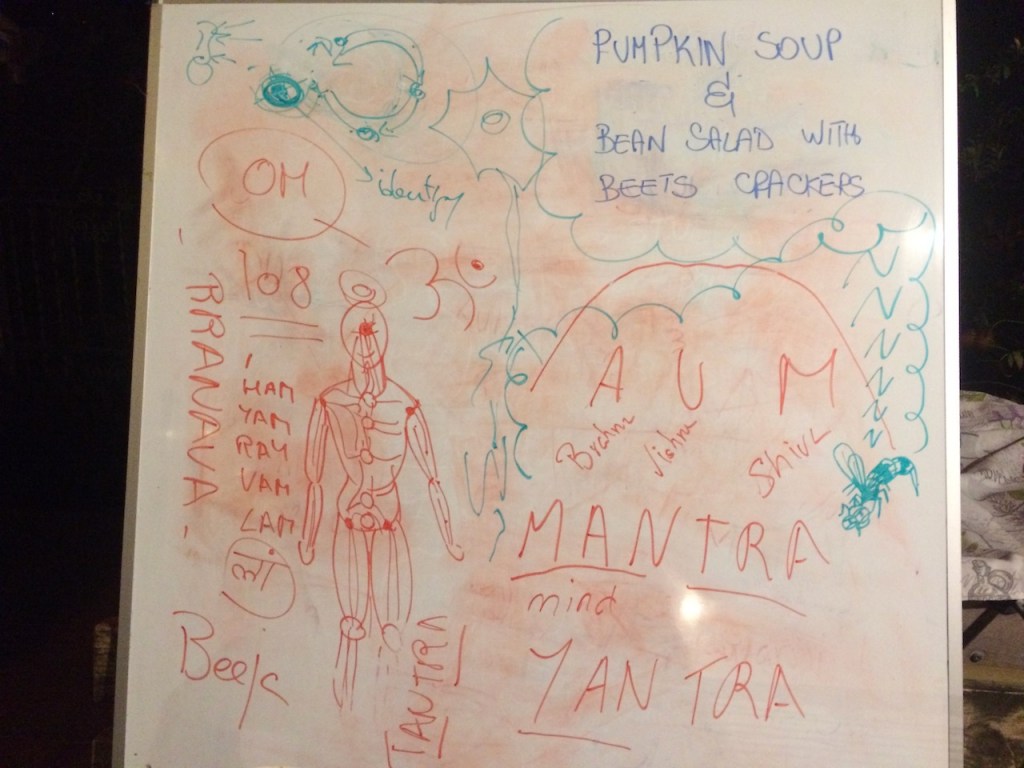 PUMPKIN SOUP
&
BEAN SALAD WITH
BEETS CRACKERS
identify
OM
108
ॐ
PRANAVA
HAM
YAM
RAM
VAM
LAM
A U M
Brahma Vishnu Shiva
MANTRA
mind
YANTRA
TANTRA
Beej